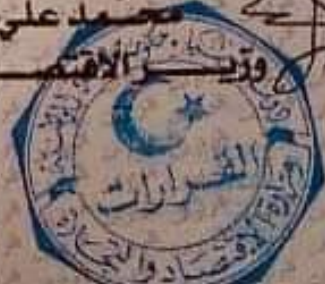 محمد علي
وزير الاقتصـ
القرارات
وزارة الاقتصاد والتجارة